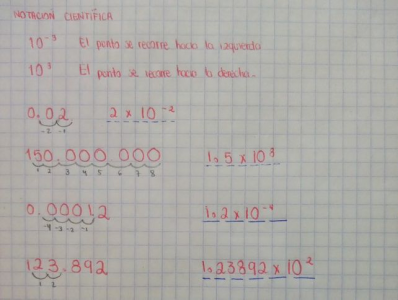 NOTACIÓN CIENTÍFICA
10⁻³ El punto se recorre hacia la izquierda
10³ El punto se recorre hacia la derecha.
0.02 2 x 10⁻²
-2 -1
150.000 000 1.5 x 10³
1 2 3 4 5 6 7 8
0.00012 1.2 x 10⁻⁴
-4 -3 -2 -1
123.892 1.23892 x 10²
1 2